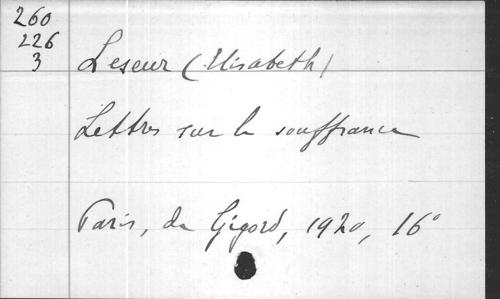 260
226
3
Leseur (Elisabeth)
Lettres sur la souffrance
Paris, de Gigord, 1920, 16°